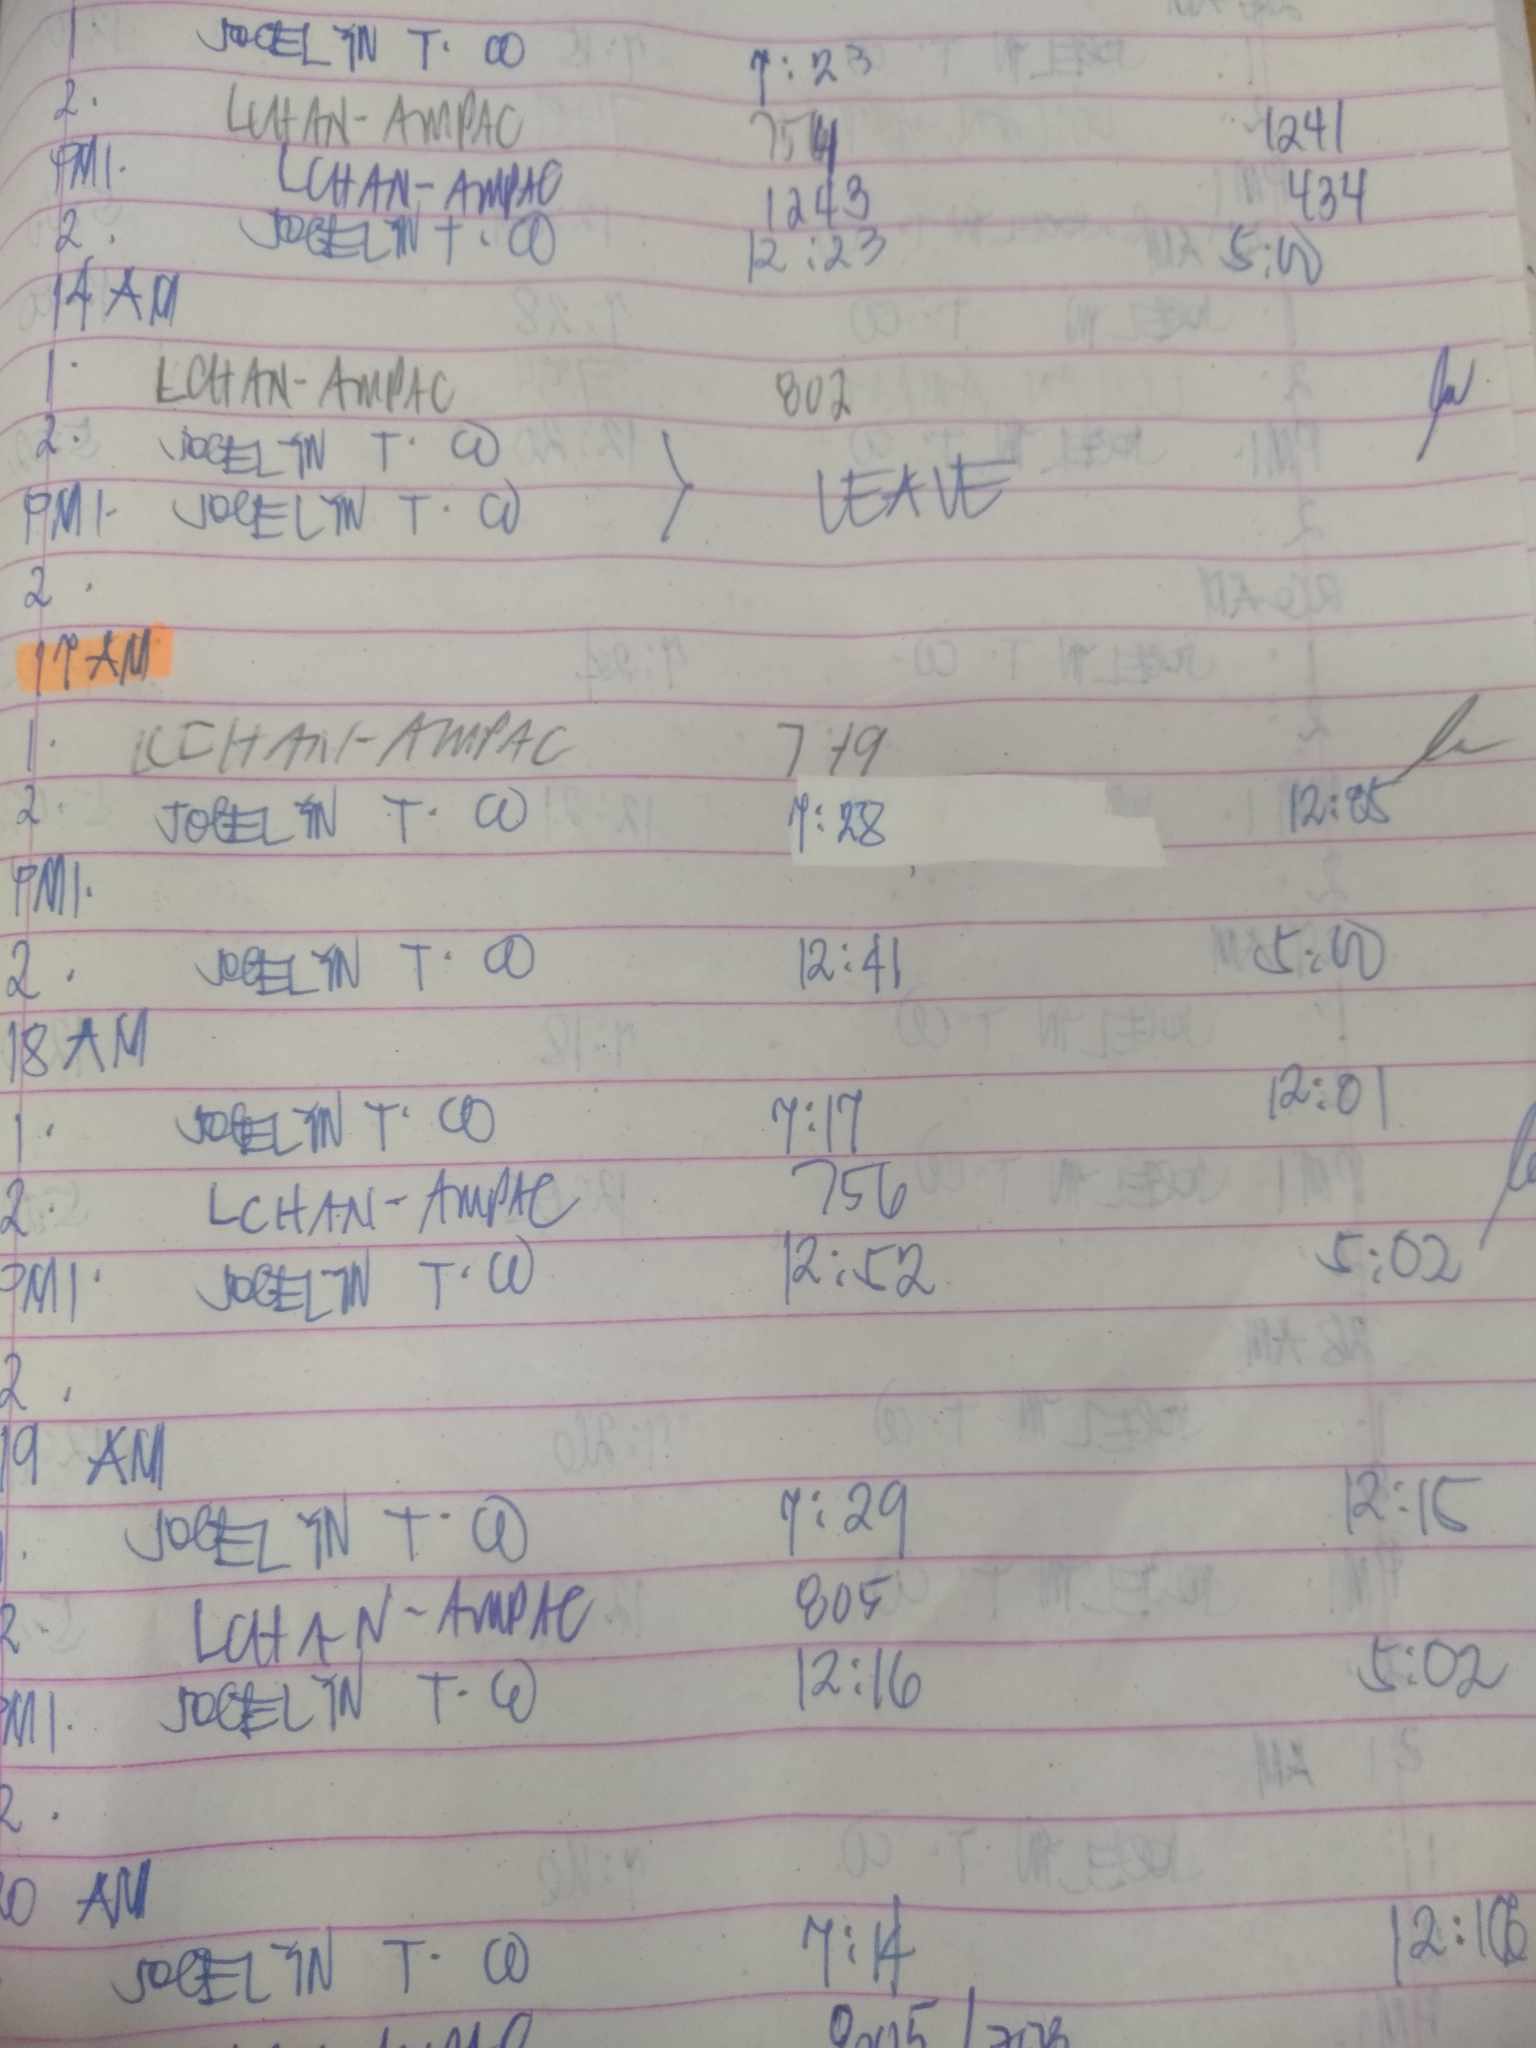 1 JOCELYN T. CO 7:23
2. LCHAN-AMPAC 754 1241
PM1. LCHAN-AMPAC 1243 434
2. JOCELYN T. CO 12:23 5:00
14 AM
1. LCHAN-AMPAC 802
2. JOCELYN T. CO
PM1. JOCELYN T. CO LEAVE
2.
17 AM
1. LCHAN-AMPAC 7
2. JOCELYN T. CO 7:28
PM1.
2. JOCELYN T. CO 12:41 5:00
18 AM
1. JOCELYN T. CO 7:17 12:01
2. LCHAN-AMPAC 756
PM1. JOCELYN T. CO 12:52 5:02
2.
19 AM
1. JOCELYN T. CO 7:29 12:15
2. LCHAN-AMPAC 805
PM1. JOCELYN T. CO 12:16 5:02
2.
20 AM
JOCELYN T. CO 7:14